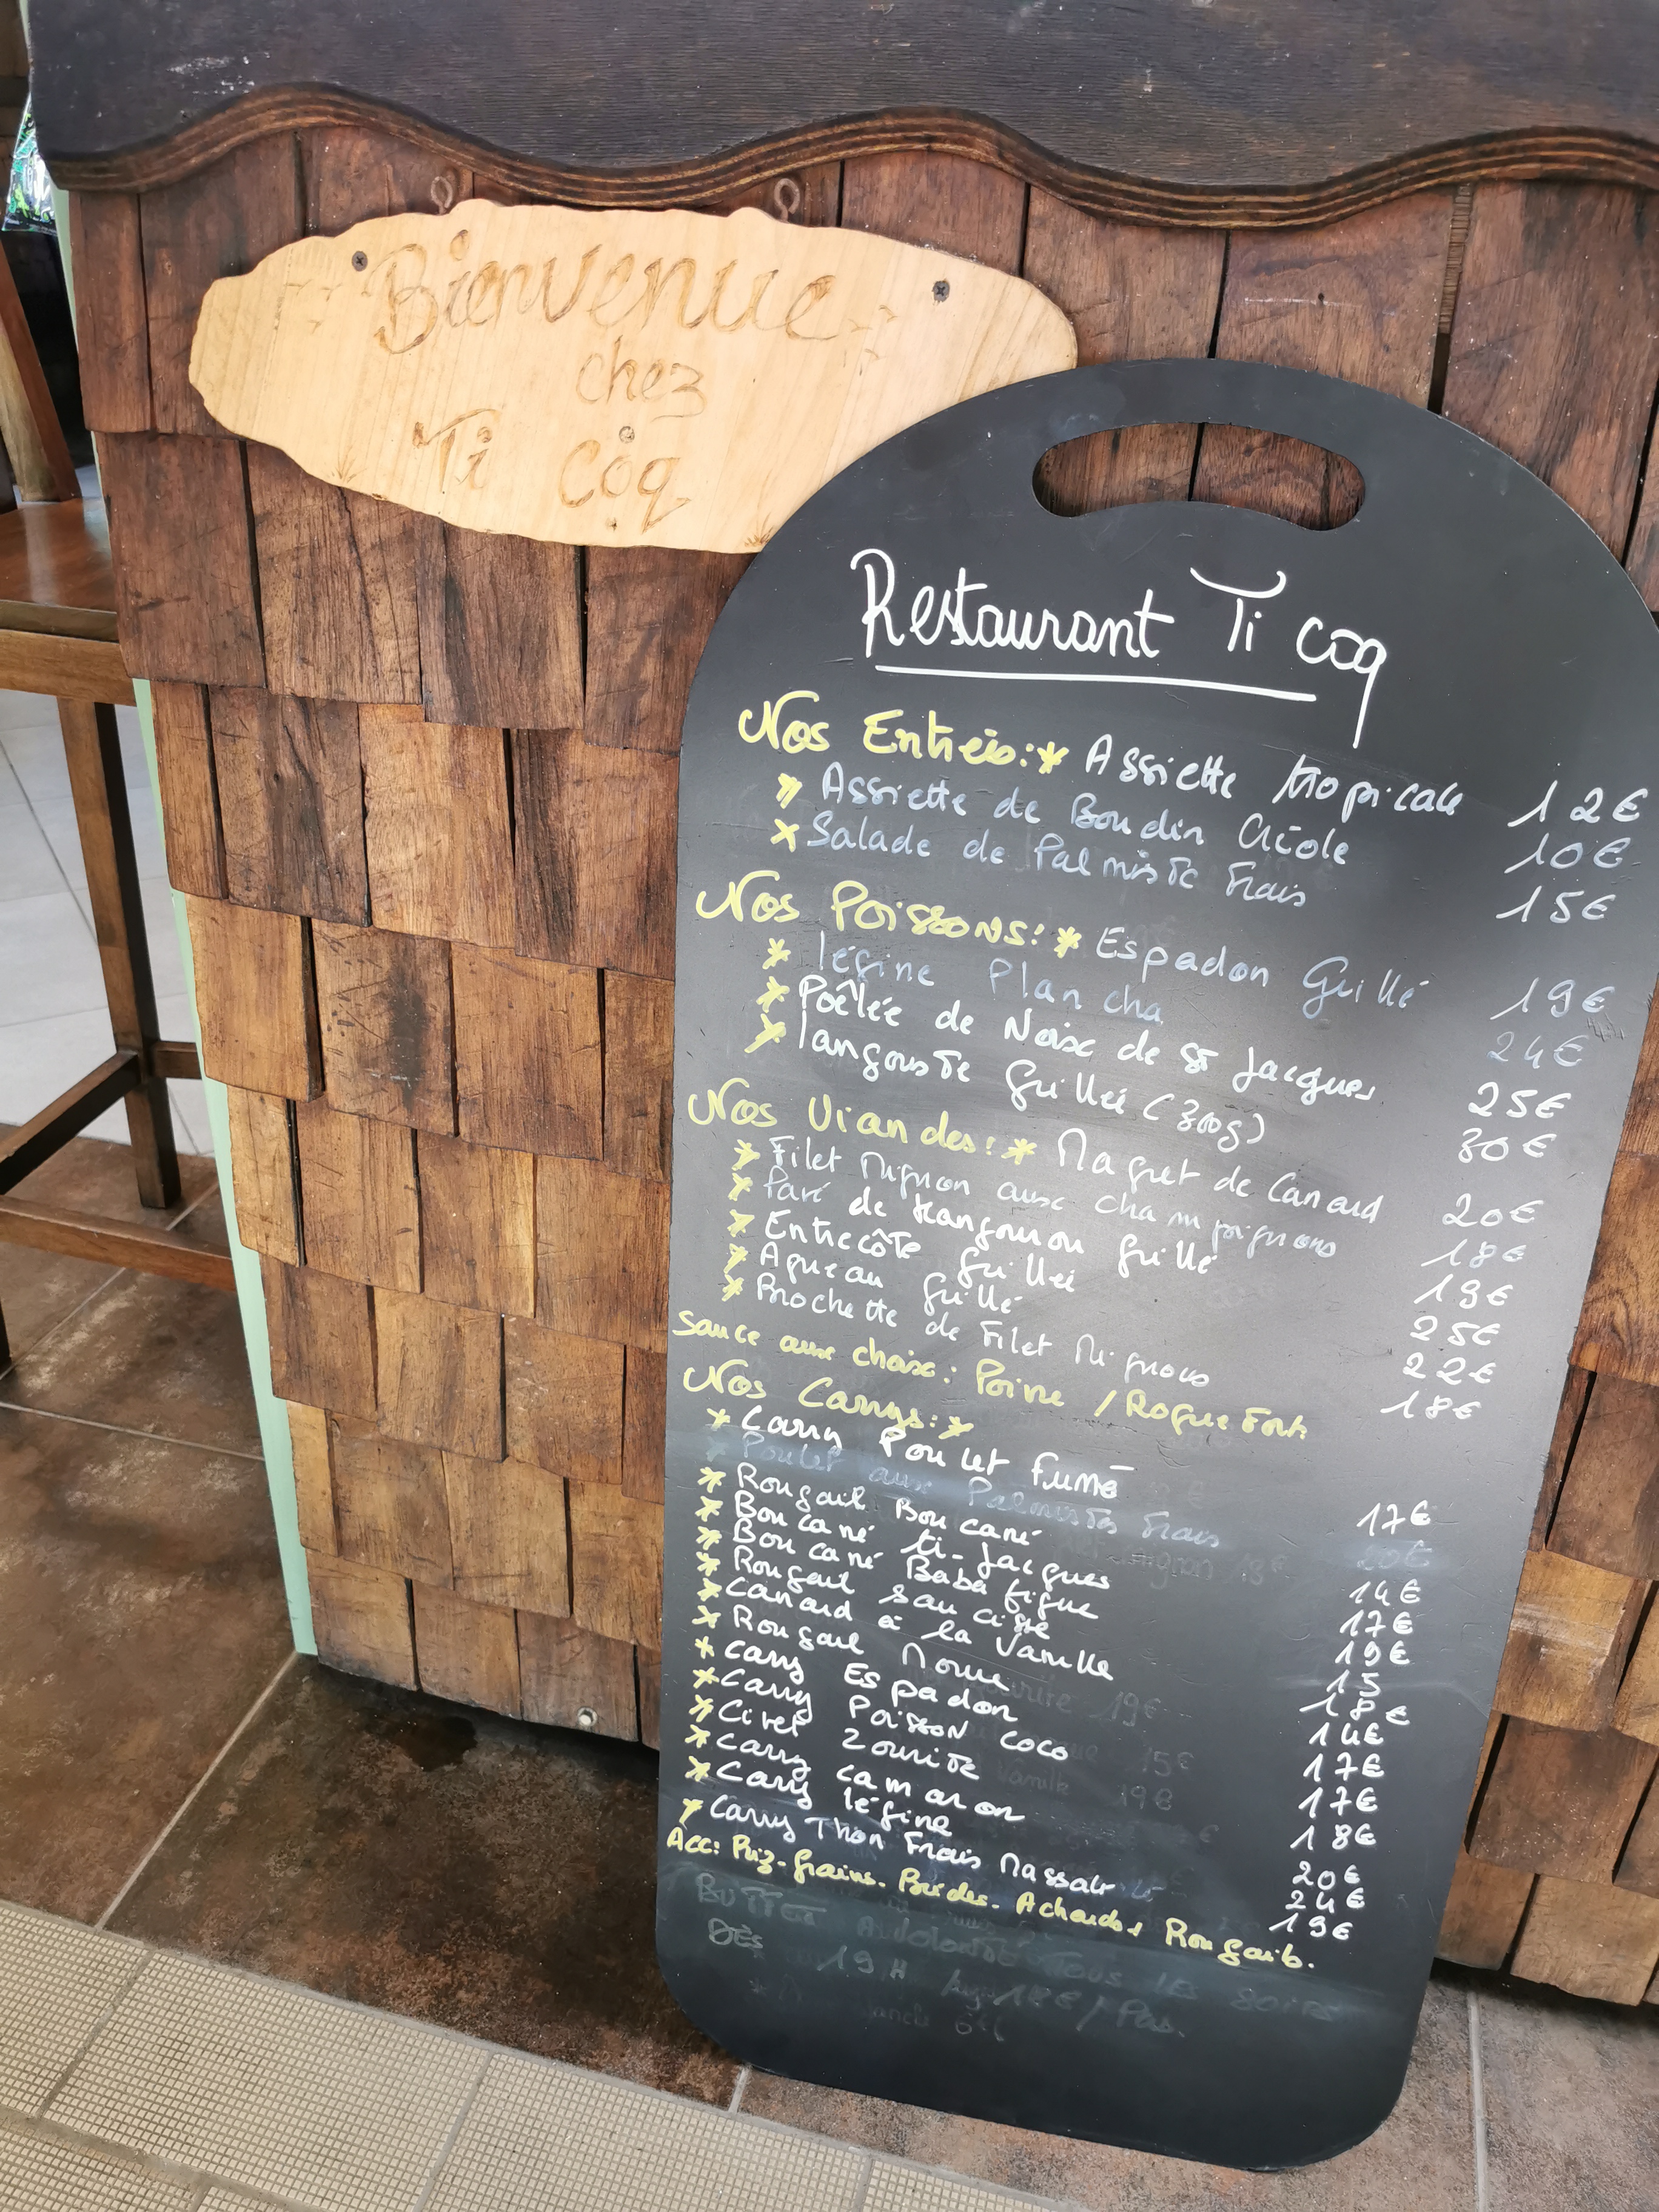 Bienvenue
chez
Ti Coq
Restaurant Ti coq
Nos Entrées:* Assiette tropicale 12€
* Assiette de Boudin Créole 10€
* Salade de Palmiste Frais 15€
Nos Poissons:* Espadon Grillé 19€
* légine Plancha 24€
* Poêlée de Noix de St Jacques 25€
* langouste Grillée (300g) 30€
Nos Viandes:* Magret de Canard 20€
* Filet Mignon aux champignons 18€
* Pavé de kangourou Grillé 19€
* Entrecôte Grillée 25€
* Agneau Grillé 22€
* Brochette de Filet Mignons 18€
Sauce aux choix: Poivre / RogueFort
Nos Carrys:*
* Carry Poulet Fumé 17€
* Poulet aux Palmistes Frais 20€
* Rougail Boucané 14€
* Boucané ti-Jacques 17€
* Boucané Baba figue 19€
* Rougail saucisse 15
* Canard à la Vanille 18€
* Rougail Morue 14€
* Carry Espadon 17€
* Carry Poisson Coco 17€
* Civet Zourite 18€
* Carry camaron 20€
* Carry légine 24€
* Carry Thon Frais Massalé 19€
Acc: Riz-Grains-Brèdes-Achards+ Rougails.
TOUS LES SOIRS
DÈS 19H